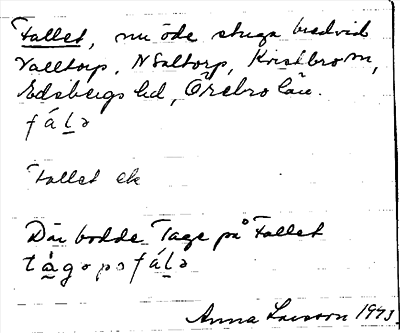 Fallet, nu öde stuga bredvid
Valltorp, N Saltorp, Kvistbro sn,
Edsbergs hd, Örebro län.
fáḻə
Fallet ek
Där bodde Tage på Fallet
tågə pə fáḻə
Anna Larsson 1943